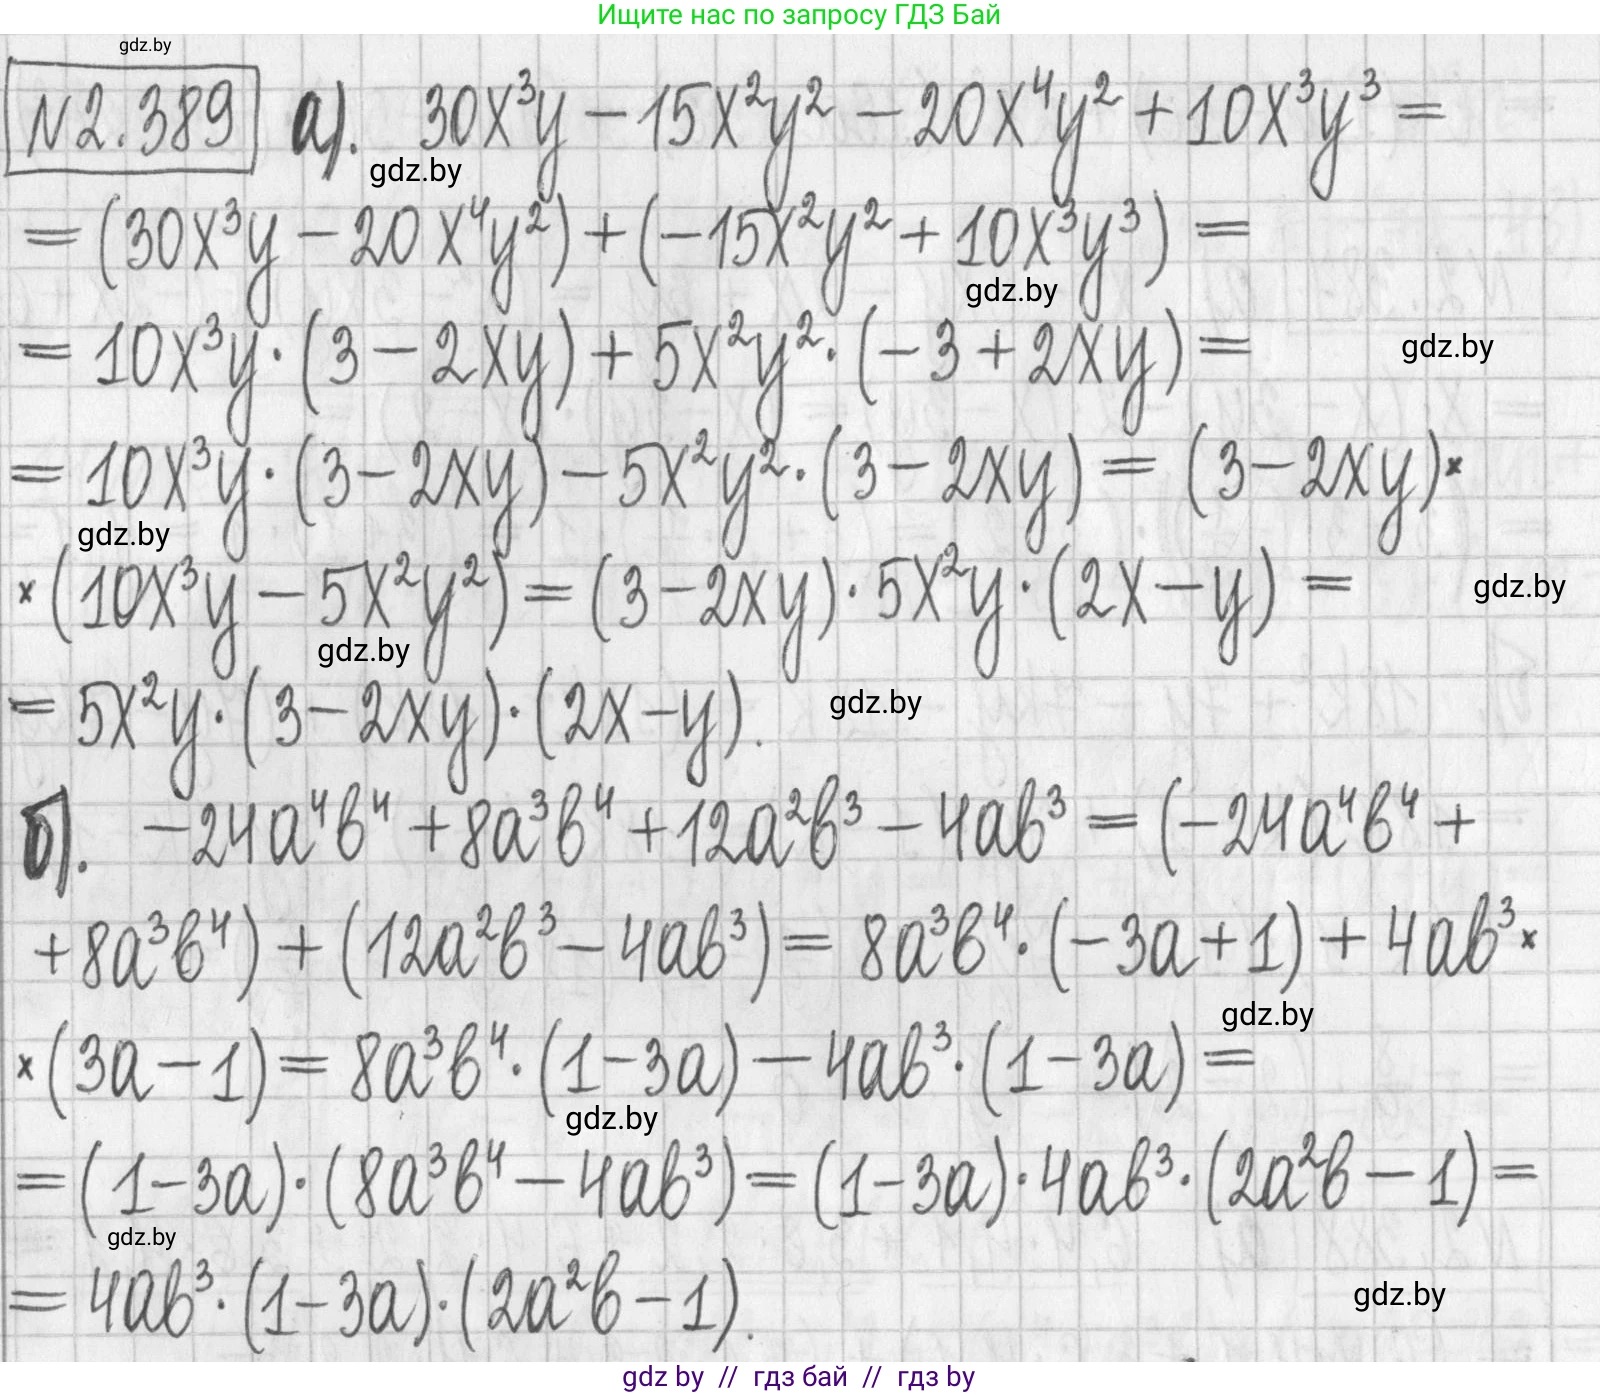 Ищите нас по запросу ГДЗ Бай
gdz.by
№2.389 а). 30x³y − 15x²y² − 20x⁴y² + 10x³y³ =
gdz.by
= (30x³y − 20x⁴y²) + (−15x²y² + 10x³y³) =
gdz.by
= 10x³y · (3 − 2xy) + 5x²y² · (−3 + 2xy) =
gdz.by
= 10x³y · (3 − 2xy) − 5x²y² · (3 − 2xy) = (3 − 2xy) ×
gdz.by
× (10x³y − 5x²y²) = (3 − 2xy) · 5x²y · (2x − y) =
gdz.by
gdz.by
= 5x²y · (3 − 2xy) · (2x − y).
gdz.by
б). −24a⁴b⁴ + 8a³b⁴ + 12a²b³ − 4ab³ = (−24a⁴b⁴ +
+ 8a³b⁴) + (12a²b³ − 4ab³) = 8a³b⁴ · (−3a + 1) + 4ab³ ×
gdz.by
× (3a − 1) = 8a³b⁴ · (1 − 3a) − 4ab³ · (1 − 3a) =
gdz.by
= (1 − 3a) · (8a³b⁴ − 4ab³) = (1 − 3a) · 4ab³ · (2a²b − 1) =
gdz.by
= 4ab³ · (1 − 3a) · (2a²b − 1).
gdz.by
gdz by // гдз бай // гдз by